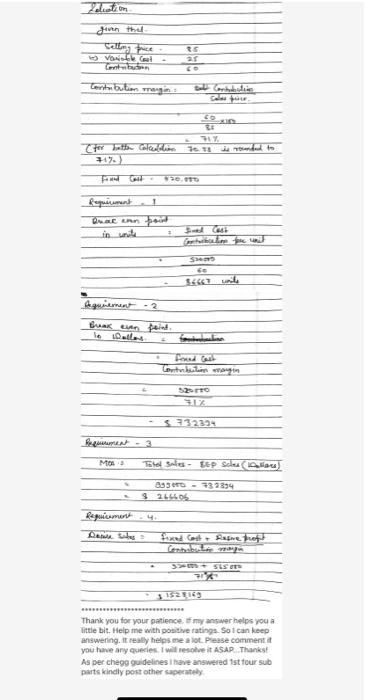 Solution
given that.
Selling price - 85
(-) Variable Cost - 25
Contribution 60
Contribution margin : Contribution
Sales price.
60 x100
85
= 71%
(for better Calculation 70.58 is rounded to
71%)
Fixed Cost - 520,000
Requirement - 1
Break even point
in units : Fixed Cost
Contribution per unit
520000
60
8666.7 units
Requirement - 2
Break even point.
In Dollars. =
Fixed Cost
Contribution margin
520000
71%
- $ 732394
Requirement - 3
MOS = Total Sales - BEP Sales (Dollars)
- 732394
= $ 266606
Requirement - 4.
Desire Sales = Fixed Cost + Desire profit
Contribution margin
520000 + 565000
71%
$ 1528169
******************************
Thank you for your patience. If my answer helps you a
little bit. Help me with positive ratings. So I can keep
answering. It really helps me a lot. Please comment if
you have any queries. I will resolve it ASAP...Thanks!
As per chegg guidelines I have answered 1st four sub
parts kindly post other saperately.